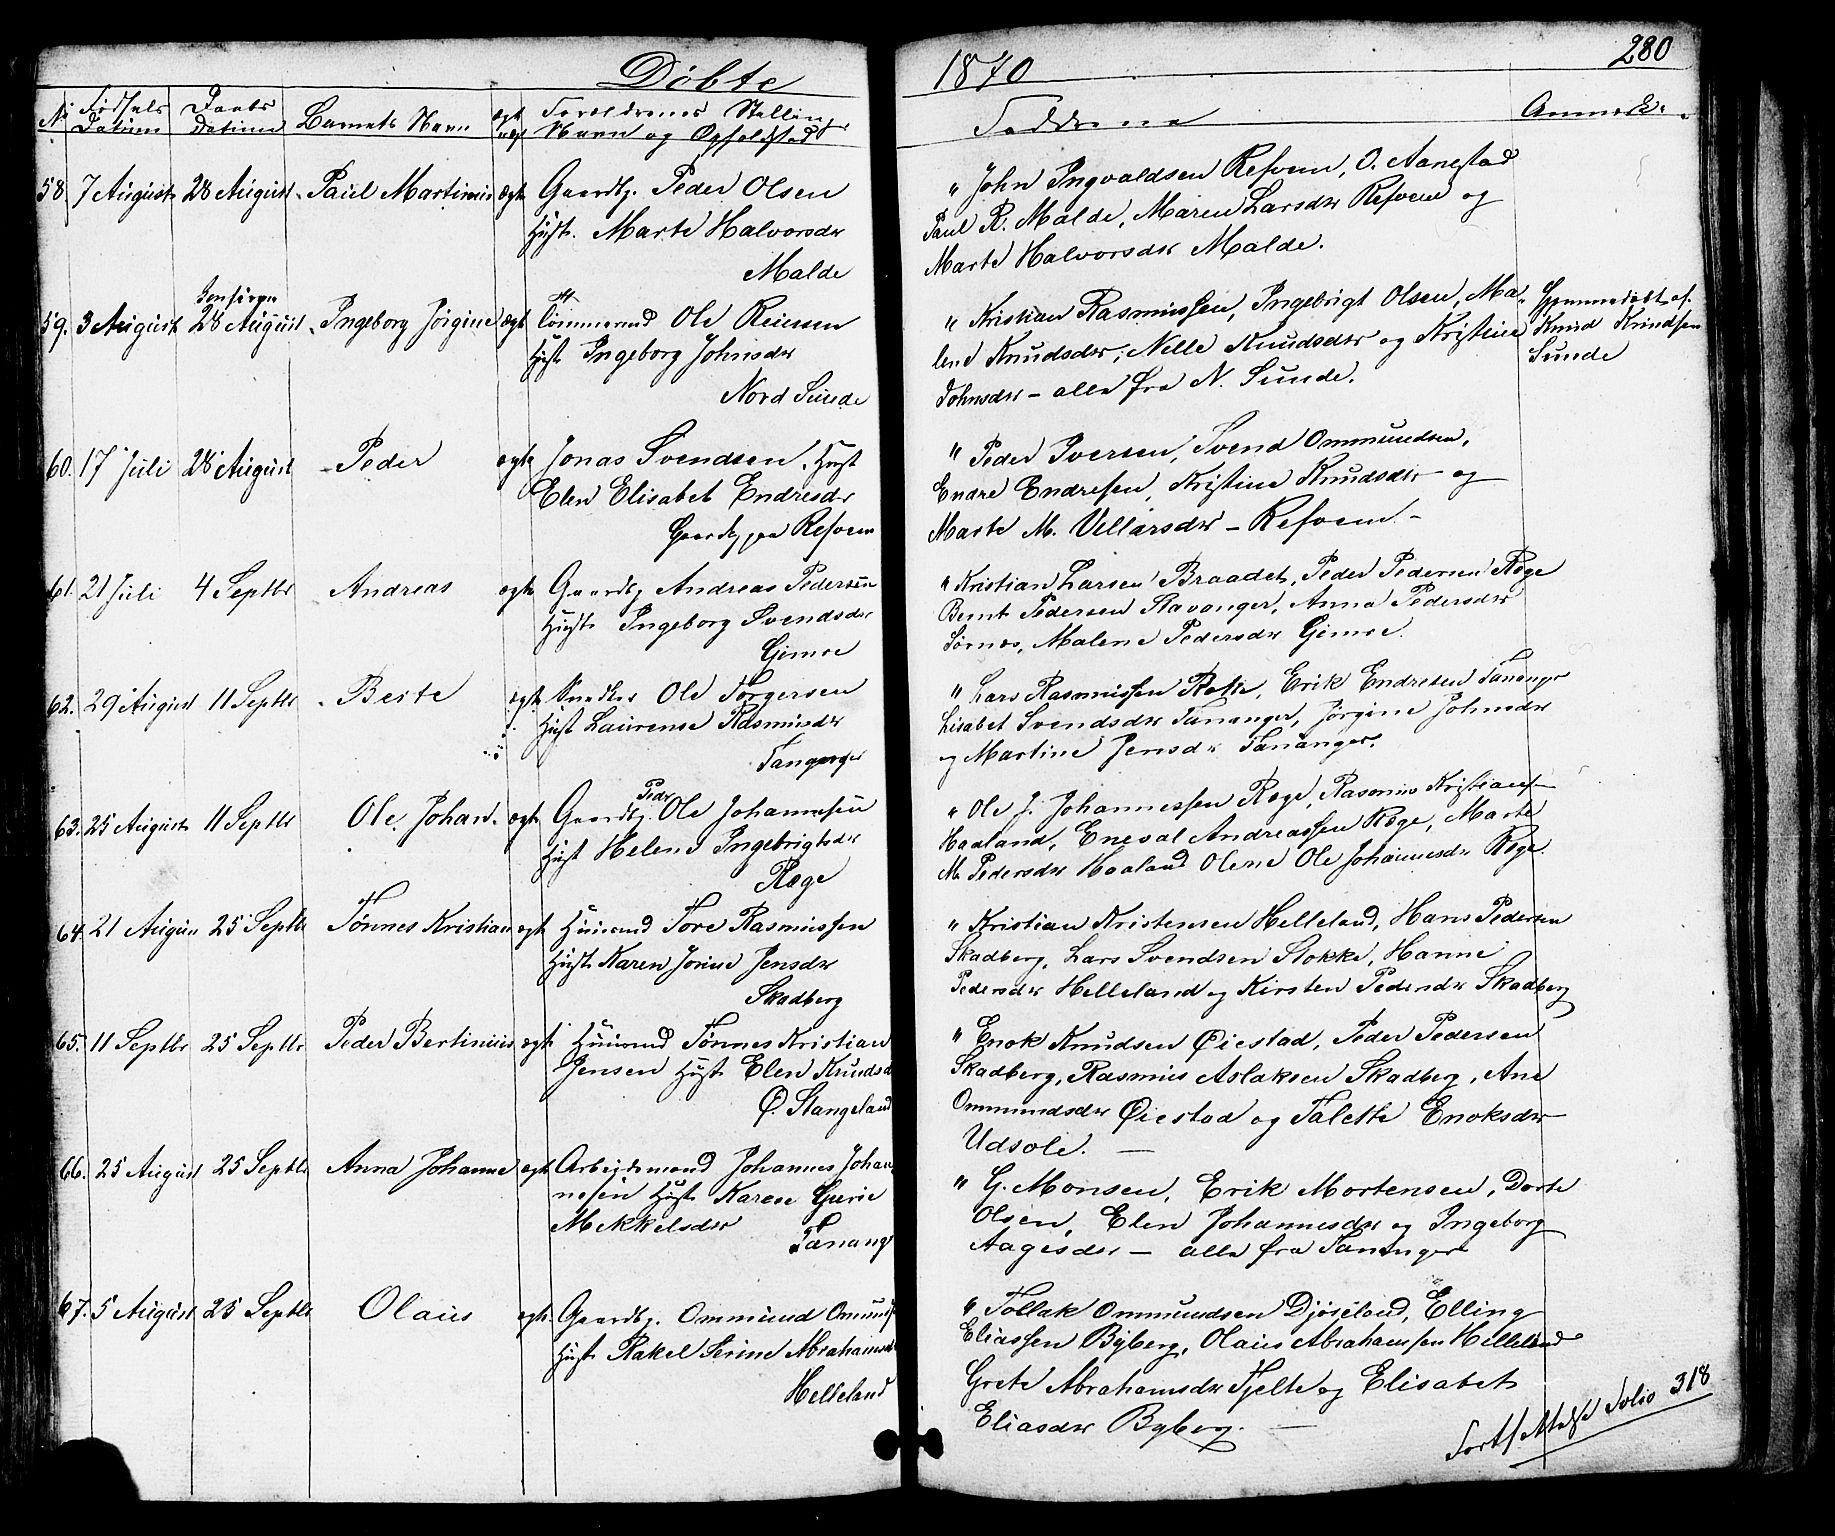 Döbte 1870 280
No Fødsels Datum Daabs Datum Barnets Navn ægt uægt Forældrenes Stilling Navn og Opholdsted Faddrene Anmærk.
58. 7 August 28 August Paul Martinius ægte Gaardbr. Peder Olsen
Hust. Marte Halvorsdtr
Malde
" John Ingvaldsen Refsem, O. Aanestad
Paul R. Malde, Maren Larsdtr Refsem og
Marte Halvorsdtr Malde.
59. 3 August 28 August Ingeborg Jörgine ægte Tömmermd Ole Reiersen
Hust Ingeborg Johnsdtr
Nord Sunde
" Kristian Rasmussen, Ingebrigt Olsen, Ma-
lene Knudsdtr, Nille Knudsdtr og Kristine
Johnsdtr - alle fra N. Sunde.
Hjemmedöbt af
Knud Knudsen
Sunde
60. 17 Juli 28 August Peder ægte Jonas Svendsen. Hust
Elen Elisabet Endresdr
Gaardbr paa Refsem
" Peder Iversen, Svend Ommundsen,
Endre Endresen, Kristine Knudsdtr og
Marte M. Vellarsdtr - Refsem -
61. 21 Juli 4 Septbr Andreas ægte Gaardbr Andreas Pedersen
Hust Ingeborg Svendsdr
Gimre
" Kristian Larsen Braadet, Peder Pedersen Røge
Bernt Pedersen Stavanger, Anna Pedersdtr
Sørnes, Malene Pedersdtr Gimre.
62. 29 August 11 Septbr Berte ægte Snedker Ole Torgersen
Hust Laurense Rasmusdtr
Tananger
" Lars Rasmussen Rott, Erik Endresen Tananger
Lisabet Svendsdtr Tananger, Jörgine Johnsdtr
og Martine Jensdtr Tananger.
63. 25 August 11 Septbr Ole Johan ægte Gaardbr. Peder Ole Johannesen
Hust Helene Ingebrigtsdtr
Røge
" Ole J. Johannessen Røge, Rasmus Kristians
Haaland, Eneval Andreassen Røge, Marte
M. Pedersdtr Haaland Olene Ole Johannesdtr Røge.
64. 21 August 25 Septbr Tönnes Kristian ægte Huusmd Tore Rasmussen
Hust Karen Jorine Jensdtr
Skadberg
" Kristian Kristensen Helleland, Hans Pedersen
Skadberg, Lars Svendsen Stokke, Hanne
Pedersdtr Helleland og Kirsten Pedersdtr Skadberg
65. 11 Septbr 25 Septbr Peder Bertinius ægte Huusmd Tönnes Kristian
Jensen Hust Elen Knudsd
Ø. Stangeland
" Enok Knudsen Øiestad, Peder Pedersen
Skadberg, Rasmus Aslaksen Skadberg, Ane
Ommundsdtr Øiestad og Talette Enoksdtr
Udsole.
66. 25 August 25 Septbr Anna Johanne ægte Arbejdsmand Johannes Johan
nesen Hust Karen Gurie
Mekkelsdtr
Tanang
" G. Monsen, Erik Mortensen, Dorte
Olsen, Elen Johannesdtr og Ingeborg
Aagesdtr - alle fra Tananger
67. 5 August 25 Septbr Olaus ægte Gaardbr. Ommund Omunds
Hust Rakel Serine Abrahamsd
Helleland
" Tollak Ommundsen Djöseland, Elling
Eliassen Byberg, Olaus Abrahamsen Helleland
Grete Abrahamsdtr Tjelte og Elisabet
Eliasdtr Byberg.
Fortsættelse Folio 318